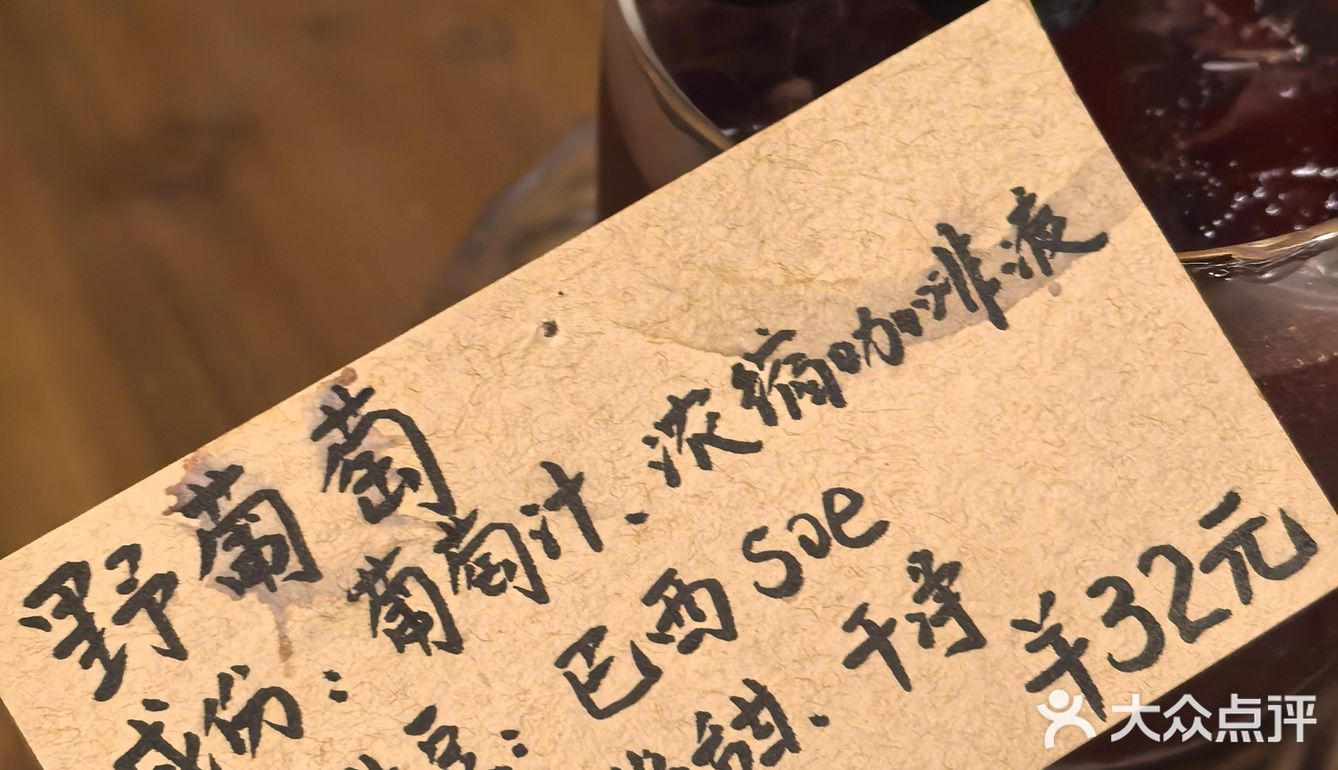 野葡萄
成份：葡萄汁.浓缩咖啡液
豆：巴西soe
甜.干净
￥32元
大众点评